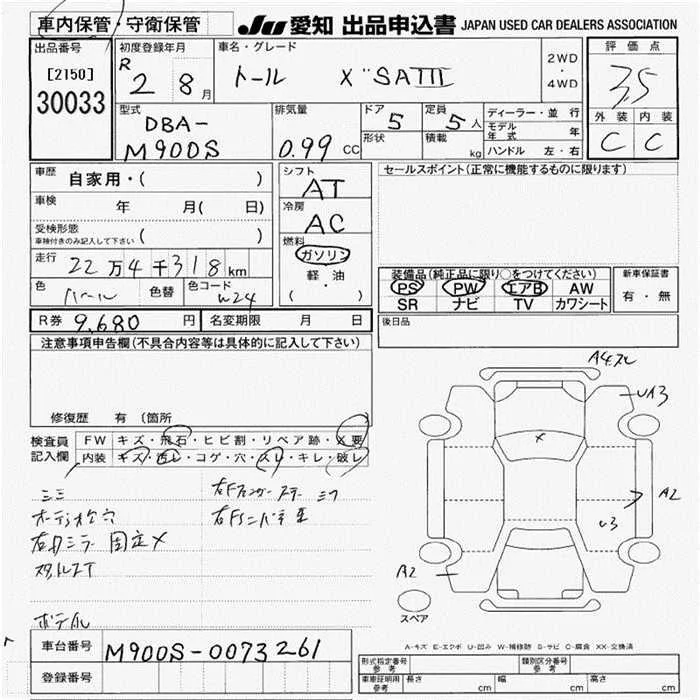 車内保管・守衛保管
JU 愛知 出品申込書 JAPAN USED CAR DEALERS ASSOCIATION
出品番号
[2150]
30033
初度登録年月
R 2 8月
車名・グレード
トール X "SAIII
2WD
・
4WD
評価点
3.5
外装 内装
C C
型式
DBA-
M900S
排気量
0.99 CC
ドア 5
形状
定員 5人
積載 kg
ディーラー・並行
モデル年式 年
ハンドル 左・右
車歴 自家用・( )
車検 年 月( 日)
受検形態
車検付きのみ記入して下さい ( )
走行 22万4千318km
色 パール 色替 色コード W24
シフト
AT
冷房
AC
燃料
ガソリン
・
軽・油
( )
セールスポイント(正常に機能するものに限ります)
装備品(純正品に限り○をつけてください)
PS PW エアB AW
SR ナビ TV カワシート
新車保証書
有・無
R券 9,680円 名変期限 月 日
後日品
注意事項申告欄(不具合内容等は具体的に記入して下さい)
修復歴 有 (箇所 )
検査員
記入欄
FW キズ・飛石・ヒビ割・リペア跡・X要
内装 キズ・汚レ・コゲ・穴・スレ・キレ・破レ
オーディオ穴
右Fフェンダーステー
右ドアミラー 固定X
A4
UA3
X
A2
U3
A2
スペア
A-キズ E-エクボ U-凹み W-補修跡 S-サビ C-腐食 XX-交換済
車台番号 M900S-0073261
登録番号
形式指定番号
参考
類別区分番号
参考
車庫証明用
参考
長さ cm 幅 cm 高さ cm